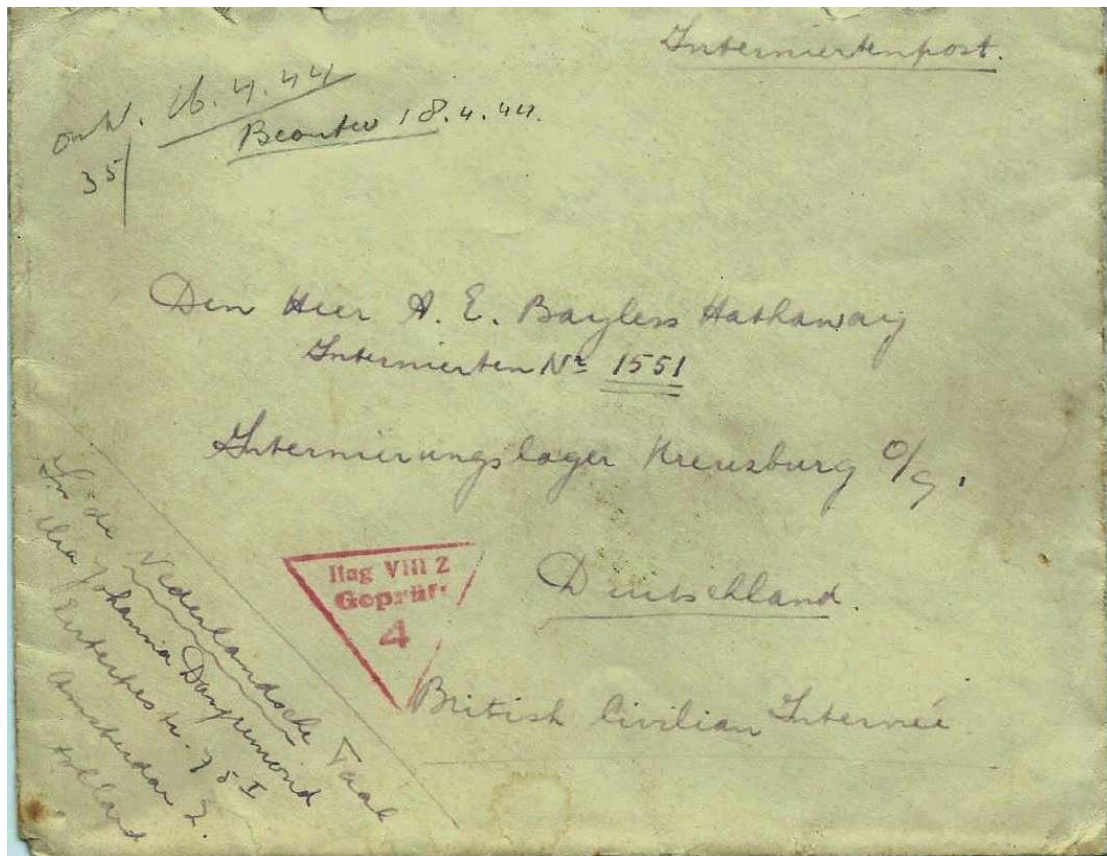 Interniertenpost.
ontv. 16.4.44
Beantw 18.4.44.
35
Den Heer A. E. Bayless Hathaway
Internierten Nr 1551
Internierungslager Kreuzburg O/S.
Deutschland.
British Civilian Internee
Ilag VIII Z
Geprüft
4
In de Nederlandsche Taal
Johanna Dangremond
75 I
Amsterdam Z.
Holland